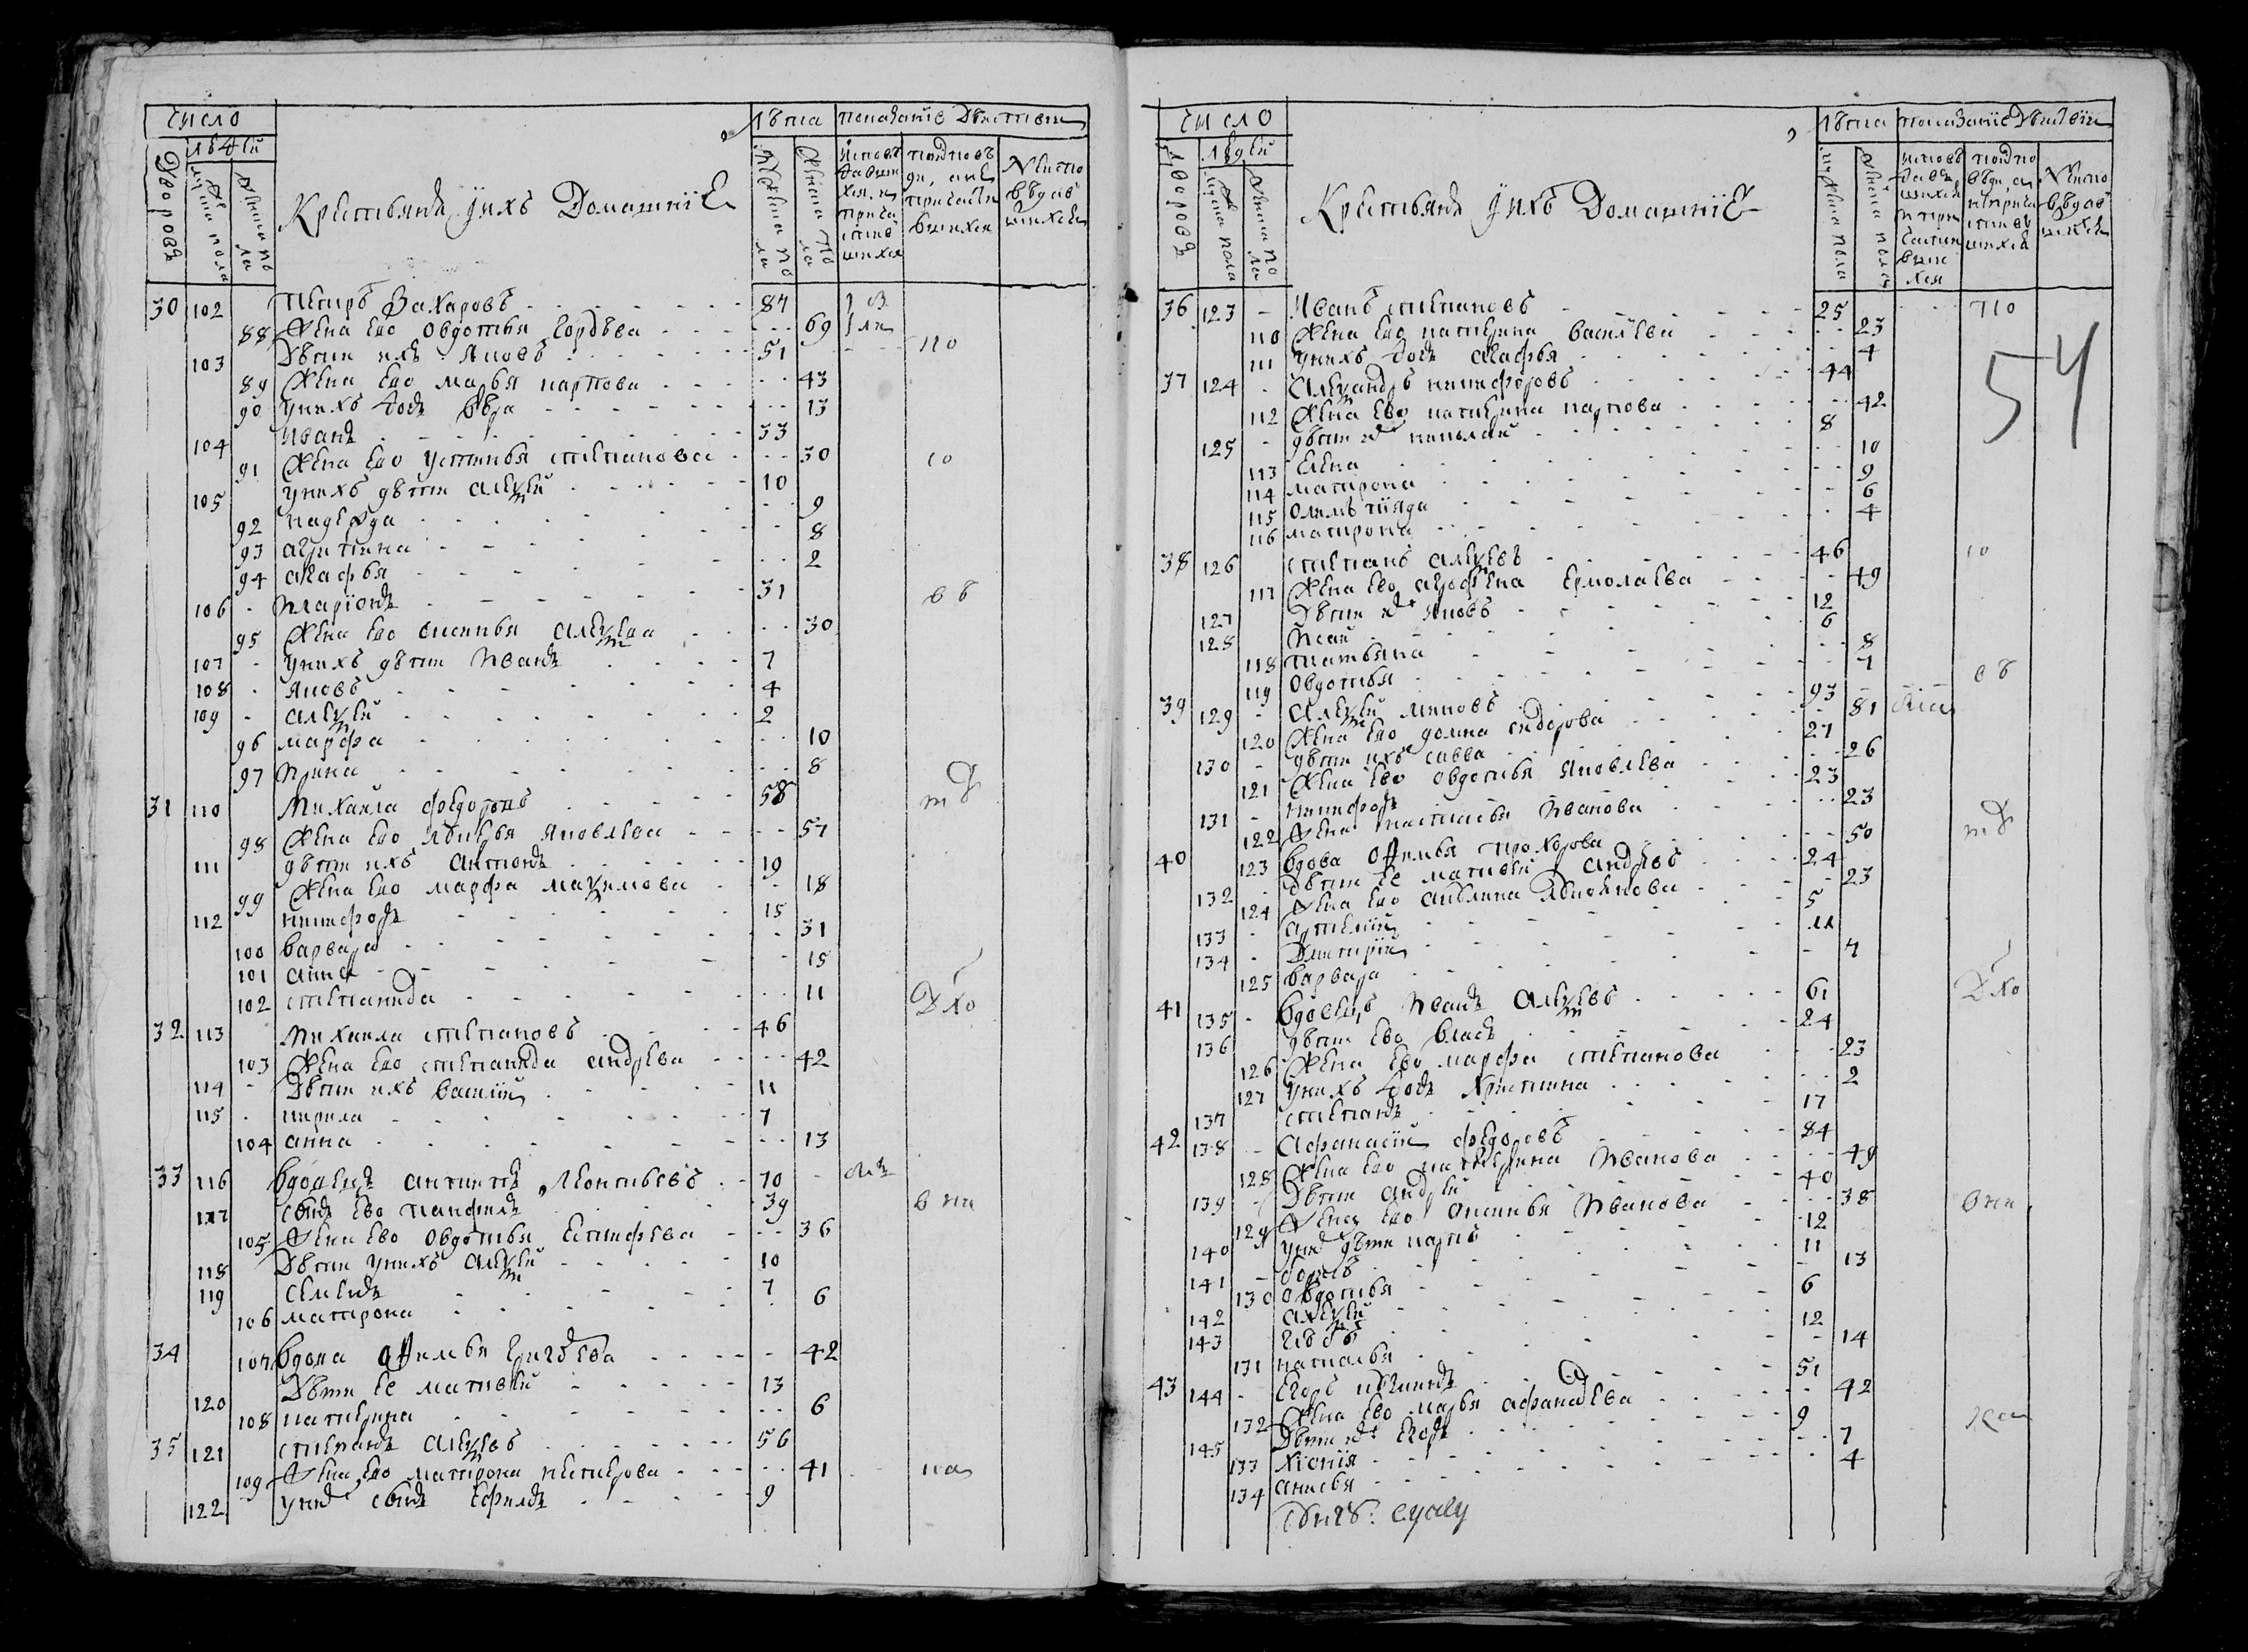 число
людей
Дворовъ
мужеска пола
женска пола
Крестьяня у ихъ Домашние
лѣта
показание Действия
мужеска пола
женска пола
исповедавшихся и причастившихся
исповеди, а не причастившихся
Неисповѣдавшихся
30 102 Петръ Захаровъ 87
88 Жена ево Овдотья Гордѣева 69
103 Дѣти ихъ Яковъ 51 по
89 Жена ево Марья Карпова 43
90 у нихъ дочь Вѣра 13
104 Иванъ 33
91 Жена ево Устинья Степанова 30 со
105 у нихъ дѣти Алексѣй 10
92 Надежда 9
93 Агрипина 8
94 Агафья 2
106 Иларионъ 31 об
95 Жена ево Аксинья Алексѣева 30
107 у нихъ дѣти Иванъ 7
108 Яковъ 4
109 Алексѣй 2
96 Марфа 10
97 Ирина 8
31 110 Михаила Федоровъ 58
98 Жена ево Яковлева 57
111 дѣти ихъ Антонъ 19
99 Жена ево Марфа Максимова 18
112 Никифоръ 15
100 Варвара 31
101 Анна 15
102 Степанида 11 Дхо
32 113 Михаила Степановъ 46
103 Жена ево Степанида Андрѣева 42
114 Дѣти ихъ Василий 11
115 Кирила 7
104 Анна 13
33 116 Вдовецъ Антипъ Леонтьевъ 70
117 Сынъ ево Панфилъ 39
105 Жена ево Овдотья Естифѣева 36
118 Дѣти у нихъ Алексѣй 10
119 Семенъ 7
106 Матрона 6
34 107 Вдова Афимья Григорьева 42
120 Дѣти ее Матвѣй 13
108 Катерина 6
35 121 Степанъ Алексѣевъ 56
109 Жена ево Матрона Нестерова 41
122 у нихъ сынъ Ефимъ 9
число
людей
Дворовъ
мужеска пола
женска пола
Крестьяня у ихъ Домашние
лѣта
показание Действия
мужеска пола
женска пола
исповедавшихся и причастившихся
исповѣди, а не причастившихся
Неисповѣдавшихся
54
36 123 Иванъ Степановъ 25 по
110 Жена ево Катерина Васильева 23
111 у нихъ дочь Агафья 4
37 124 Александръ Никифоровъ 44
112 Жена ево Катерина Карпова 42
125 дѣти их Николай 8
113 Елена 10
114 Матрона 9
115 Олимпияда 6
116 Матрона 4
38 126 Степанъ Алексѣевъ 46 со
117 Жена ево Агрофена Ермолаева 49
127 Дѣти их Яковъ 12
128 Исай 6
118 Татьяна 8
119 Овдотья 1 об
39 129 Алексѣй Миновъ 93
120 Жена ево Домна Сидорова 81
130 дѣти ихъ Савва 27
121 Жена ево Овдотья Яковлева 26
131 Никифоръ 23
122 Жена Настасья Иванова 23
40 123 Вдова Афимья Прохорова 50
132 Дѣти ее Матвѣй Андрѣевъ 24
124 Жена ево Акулина 23
133 Артемий 5
134 Дмитрий
125 Варвара 4
41 135 Вдовецъ Иванъ Алексѣевъ 61 Дхо
136 дѣти ево Власъ 24
126 Жена ево Марфа Степанова 23
127 у нихъ дочь Христина 2
137 Степанъ 17
42 138 Афанасий Федоровъ 84
128 Жена ево Катерина Иванова 49
139 Дѣти Андрѣй 40
129 Жена ево Аксинья Иванова 38
140 у них дѣти Карпъ 12
141 Борисъ 11
130 Овдотья 13
142 Алексѣй 6
143 Глѣбъ 12
131 Наталья 14
43 144 Егоръ 51
132 Жена ево Марья Афанасьева 42
145 Дѣти их Егоръ 9
133 Хионія 7
134 Анисья 4